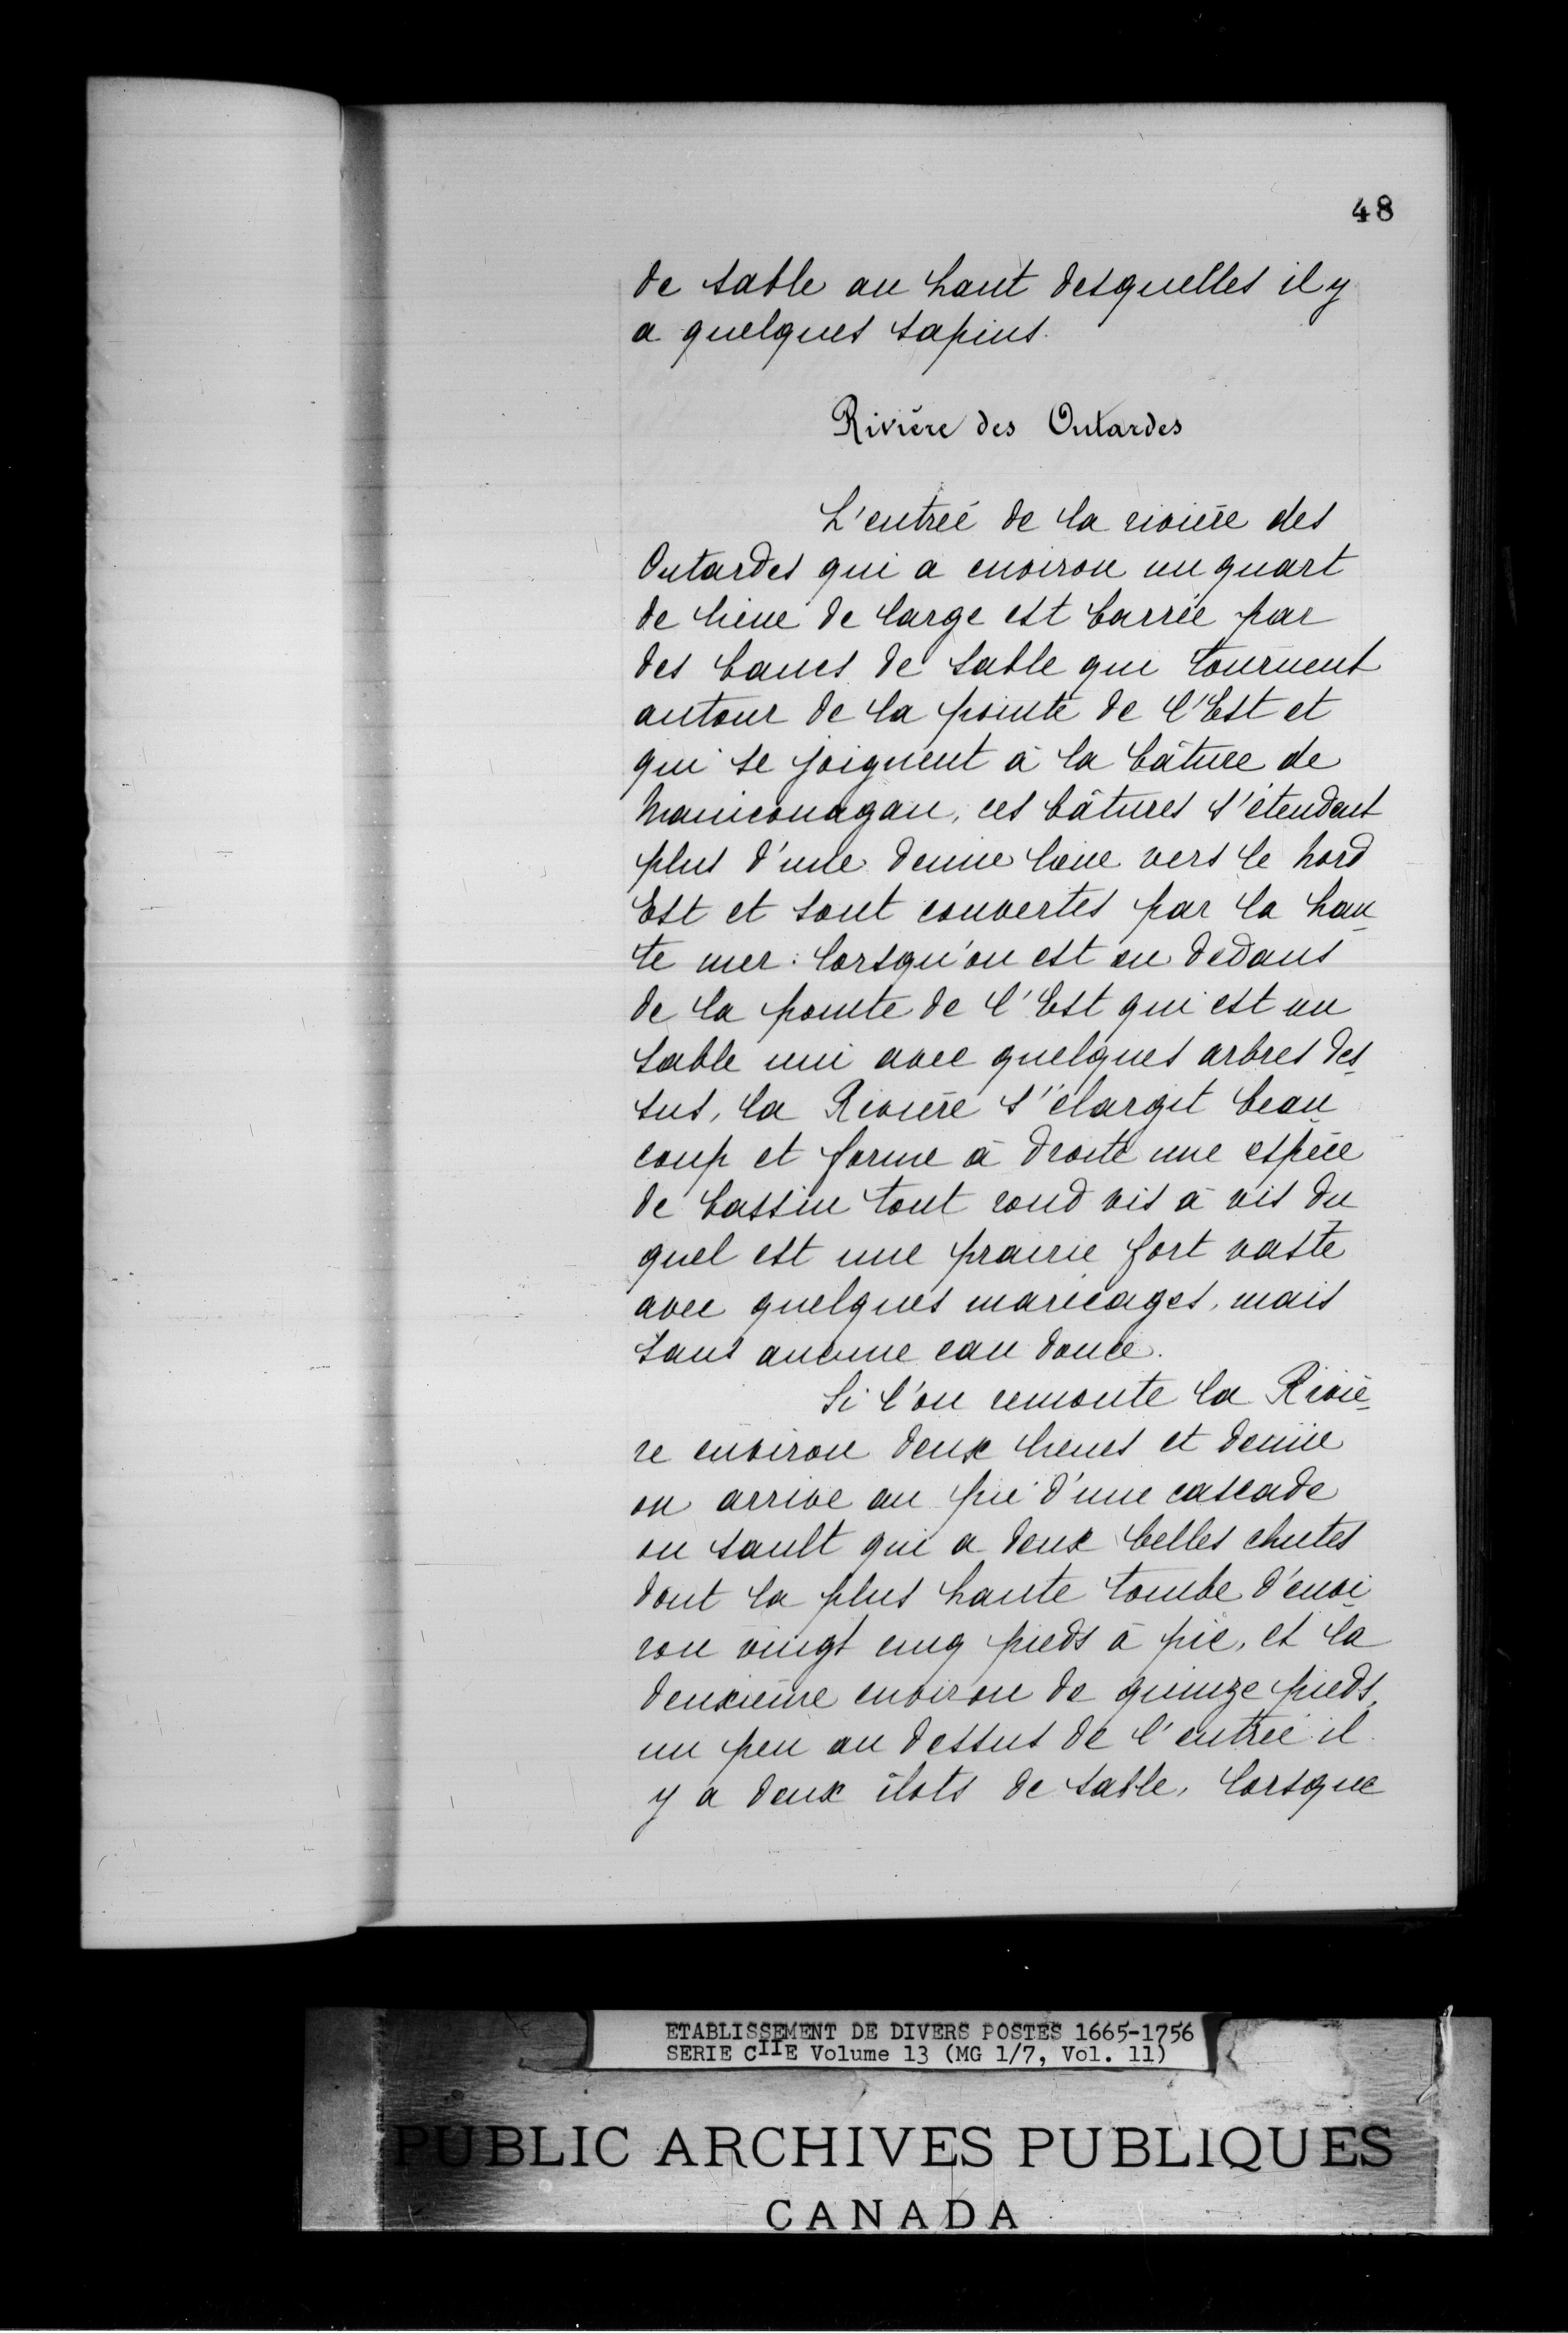 48
de sable au haut desquelles il y
a quelques sapins.
Rivière des Outardes
L'entrée de la rivière des
Outardes qui a environ un quart
de lieue de large est barrée par
des bancs de sable qui tournent
autour de la pointe de l'Est et
qui se joignent à la bâture de
Manicouagan, ces bâtures s'étendent
plus d'une demie lieue vers le Nord
Est et sont couvertes par la hau_
te mer: lorsqu'on est en dedans
de la pointe de l'Est qui est un
sable uni avec quelques arbres des_
sus, la Rivière s'élargit beau_
coup et forme à droite une espèce
de bassin tout rond vis à vis du_
quel est une prairie fort vaste
avec quelques marécages, mais
sans aucune eau douce.
Si l'on remonte la Riviè_
re environ deux lieues et demie
on arrive au pié d'une cascade
ou sault qui a deux belles chutes
dont la plus haute tombe d'envi_
ron vingt cinq pieds à pic, et la
deuxième environ de quinze pieds,
un peu au dessus de l'entrée il
y a deux îlots de sable, lorsque
ETABLISSEMENT DE DIVERS POSTES 1665-1756
SERIE CIIE Volume 13 (MG 1/7, Vol. 11)
PUBLIC ARCHIVES PUBLIQUES
CANADA